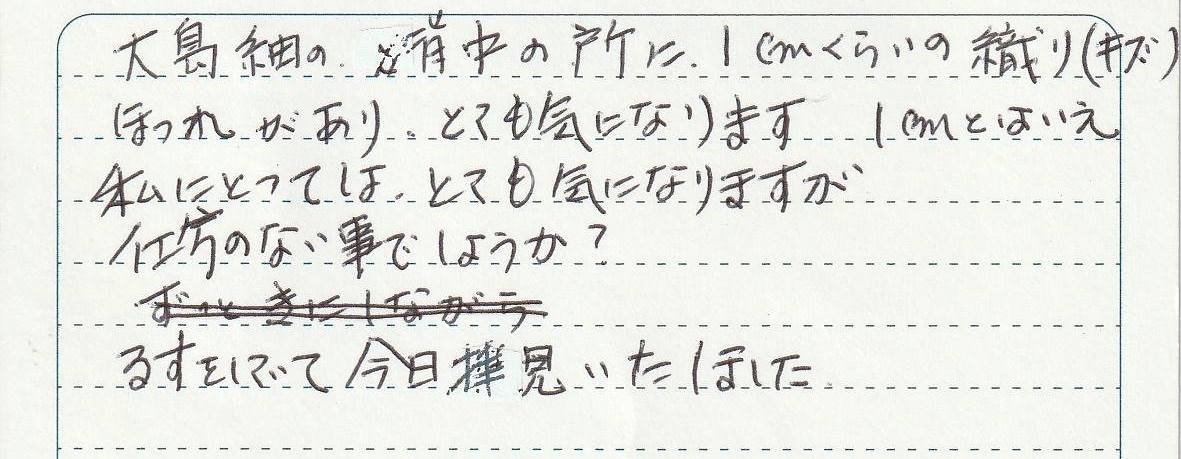 大島紬の 背中の所に、1cmくらいの織り(キズ)
ほつれがあり、とても気になります 1cmとはいえ
私にとっては、とても気になりますが
仕方のない事でしょうか?
ずっときにしながら
るすをして 今日拝見いたしました